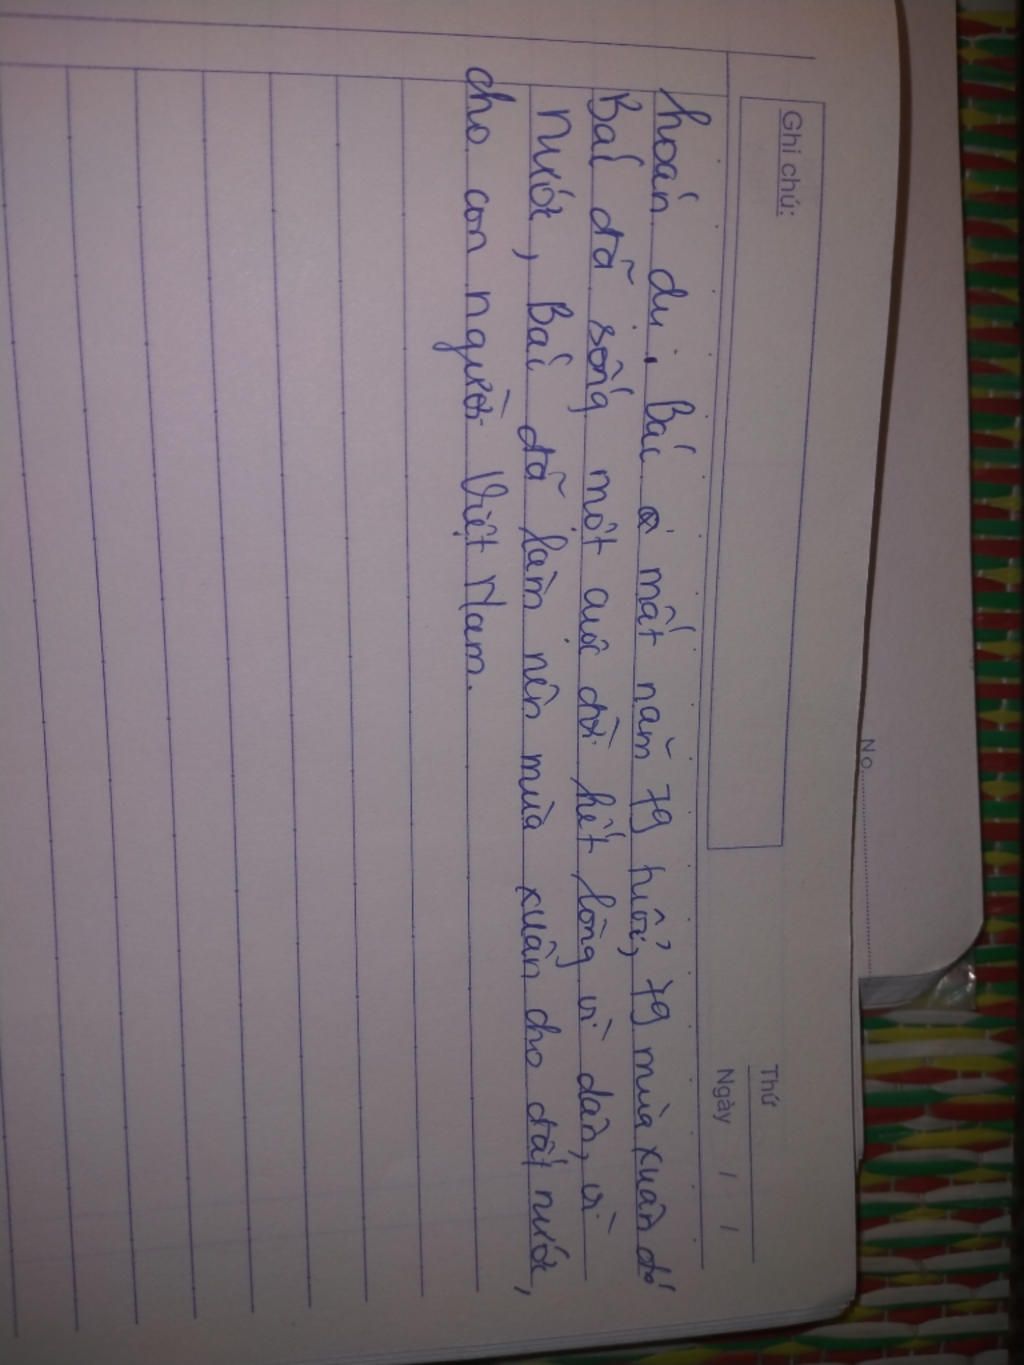 No
Ghi chú:
Thứ
Ngày / /
hoán dụ. Bác mất năm 79 tuổi, 79 mùa xuân đó
Bác đã sống một cuộc đời hết lòng vì dân, vì
nước, Bác đã làm nên mùa xuân cho đất nước,
cho con người Việt Nam.